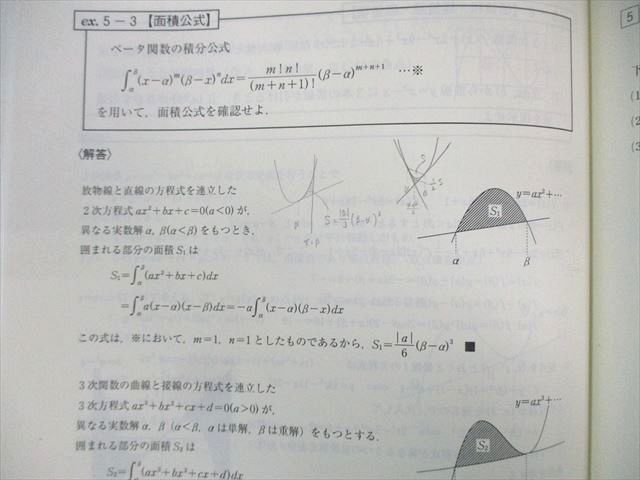 ex. 5-3【面積公式】
ベータ関数の積分公式
∫_α^β (x-α)^m(β-x)^n dx = m!n!/(m+n+1)! (β-α)^{m+n+1} …※
を用いて，面積公式を確認せよ．
〈解答〉
放物線と直線の方程式を連立した
2次方程式 ax²+bx+c=0(a<0) が，
異なる実数解 α, β(α<β) をもつとき，
囲まれる部分の面積 S₁ は
S₁=∫_α^β (ax²+bx+c)dx
=∫_α^β a(x-α)(x-β)dx=-a∫_α^β (x-α)(β-x)dx
この式は，※において，m=1, n=1 としたものであるから，S₁=|a|/6 (β-α)³ ■
y=ax²+…
S₁
α
β
3次関数の曲線と接線の方程式を連立した
3次方程式 ax³+bx²+cx+d=0(a>0) が，
異なる実数解 α, β (α<β, α は単解，β は重解) をもつとする．
囲まれる部分の面積 S₂ は
S₂=∫_α^β (ax³+bx²+cx+d)dx
y=ax³+…
S₂
5
(1
(2
(3